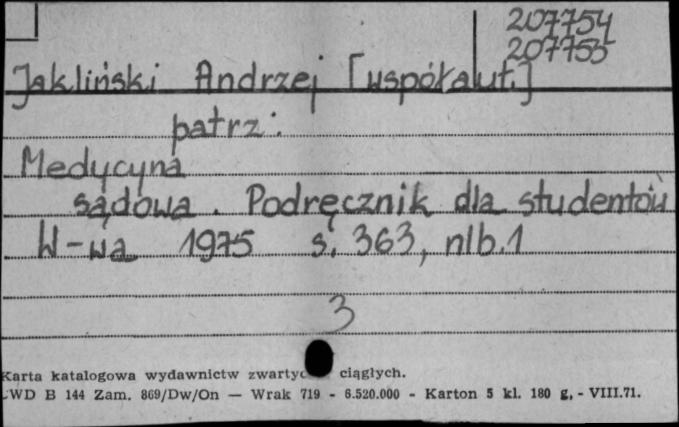 207754
207755
Jakliński Andrzej [współaut.]
patrz:
Medycyna
sądowa. Podręcznik dla studentów
W-wa 1975 s. 363, nlb.1
3
Karta katalogowa wydawnictw ciągłych.
WD B 144 Zam. 869/Dw/On — Wrak 719 - 6.520.000 - Karton 5 kl. 180 g, - VIII.71.